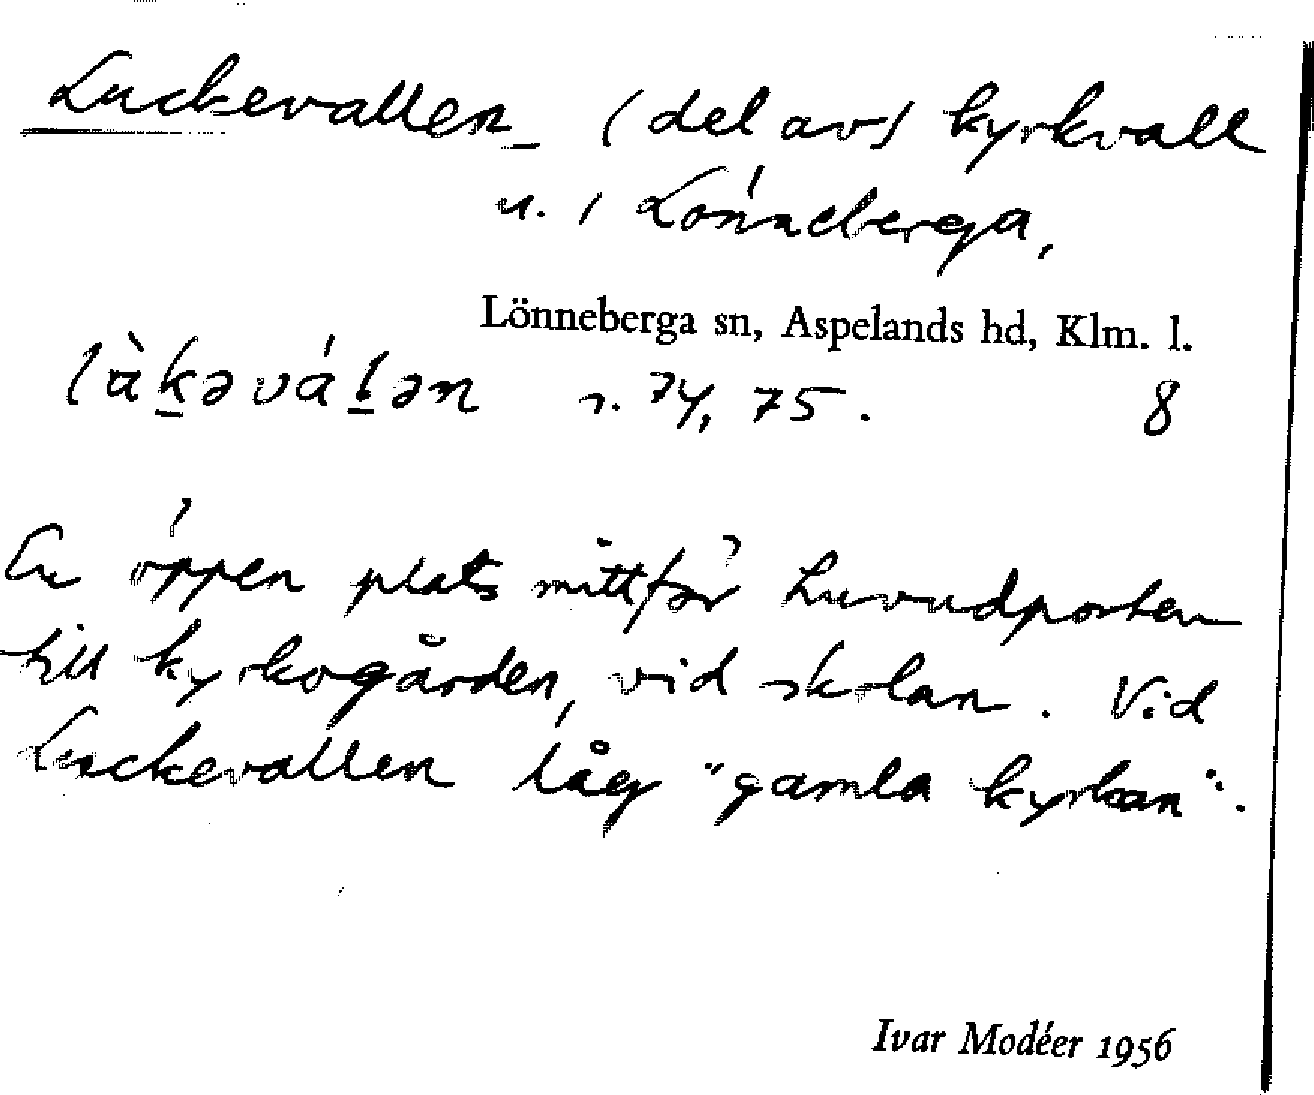 Luckevallen (del av) kyrkvall
u. i Lönneberga,
Lönneberga sn, Aspelands hd, Klm. l.
là̀k̲əvál̲ən s. 74, 75. 8
En öppen plats mittför huvudporten
till kyrkogården, vid skolan. Vid
Luckevallen låg "gamla kyrkan".
Ivar Modéer 1956